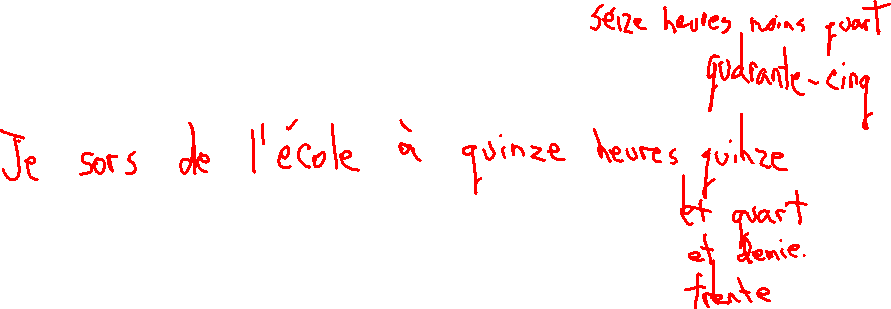 seize heures moins quart
quarante-cinq
Je sors de l'école à quinze heures quinze
et quart
et demie.
trente